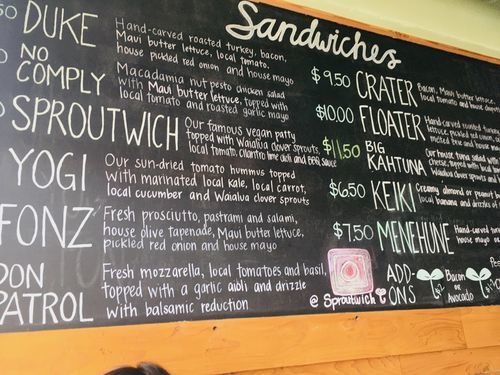 Sandwiches
50 DUKE
Hand-carved roasted turkey, bacon,
Maui butter lettuce, local tomato,
house pickled red onion and house mayo
NO
COMPLY
Macadamia nut pesto chicken salad
with Maui butter lettuce, topped with
local tomato and roasted garlic mayo
SPROUTWICH
Our famous vegan patty
topped with Waialua clover sprouts,
local tomato, cilantro lime aioli and BBQ sauce
YOGI
Our sun-dried tomato hummus topped
with marinated local kale, local carrot,
local cucumber and Waialua clover sprouts
FONZ
Fresh prosciutto, pastrami and salami,
house olive tapenade, Maui butter lettuce,
pickled red onion and house mayo
DON
PATROL
Fresh mozzarella, local tomatoes and basil,
topped with a garlic aioli and drizzle
with balsamic reduction
$9.50 CRATER
Bacon, Maui butter lettuce
local tomato and house
$10.00 FLOATER
Hand-carved roasted
lettuce, pickled red
melted brie and house
$11.50 BIG
KAHTUNA
Our house tuna salad
cheese, topped with local
Waialua clover sprouts
$6.50 KEIKI
Creamy almond or peanut
local banana and
$7.50 MENEHUNE
Hand-carved
house mayo or
@Sproutwich
ADD-
ONS
$2
Bacon
or
Avocado